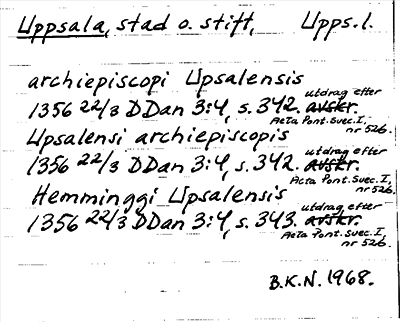 Uppsala, stad o. stift, Upps.l.
archiepiscopi Upsalensis
1356 22/3 DDan 3:4, s. 342. avskr. utdrag efter Acta Pont. Suec. I, nr 526.
Upsalensi archiepiscopis
1356 22/3 DDan 3:4, s. 342. avskr. utdrag efter Acta Pont. Suec. I, nr 526.
Hemminggi Upsalensis
1356 22/3 DDan 3:4, s. 343. avskr. utdrag efter Acta Pont. Suec. I, nr 526.
B.K.N. 1968.